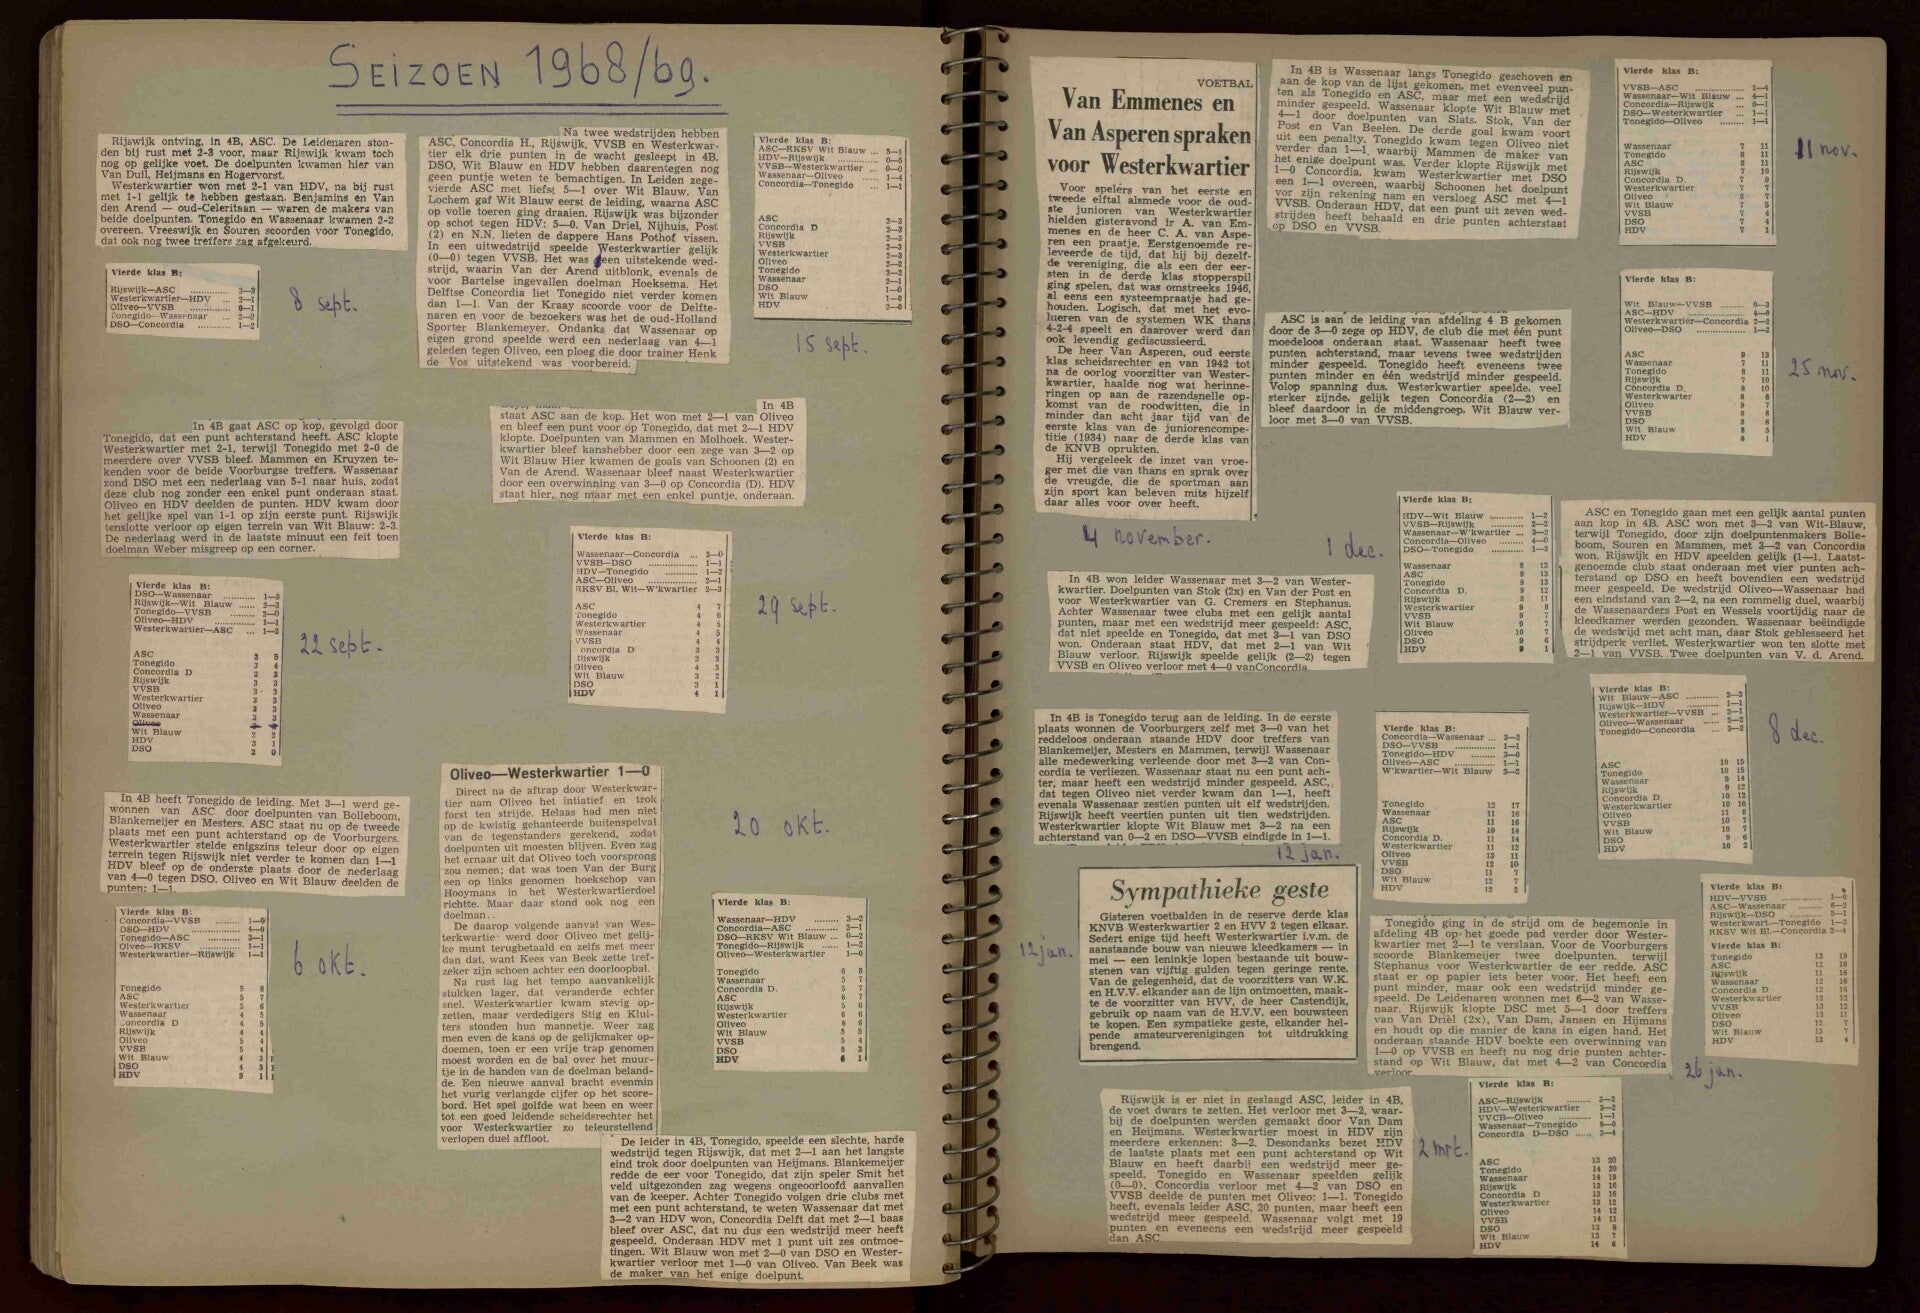 SEIZOEN 1968/69.
Rijswijk ontving, in 4B, ASC. De Leidenaren ston-
den bij rust met 2-3 voor, maar Rijswijk kwam toch
nog op gelijke voet. De doelpunten kwamen hier van
Van Duil, Heijmans en Hogervorst.
Westerkwartier won met 2-1 van HDV, na bij rust
met 1-1 gelijk te hebben gestaan. Benjamins en Van
den Arend — oud-Celeritaan — waren de makers van
beide doelpunten. Tonegido en Wassenaar kwamen 2-2
overeen. Vreeswijk en Souren scoorden voor Tonegido,
dat ook nog twee treffers zag afgekeurd.
Vierde klas B:
Rijswijk—ASC 3—3
Westerkwartier—HDV 2—1
Oliveo—VVSB 0—1
Tonegido—Wassenaar 2—2
DSO—Concordia 1—2
8 sept.
Na twee wedstrijden hebben
ASC, Concordia H., Rijswijk, VVSB en Westerkwar-
tier elk drie punten in de wacht gesleept in 4B.
DSO, Wit Blauw en HDV hebben daarentegen nog
geen puntje weten te bemachtigen. In Leiden zege-
vierde ASC met liefst 5—1 over Wit Blauw. Van
Lochem gaf Wit Blauw eerst de leiding, waarna ASC
op volle toeren ging draaien. Rijswijk was bijzonder
op schot tegen HDV: 5—0. Van Driel, Nijhuis, Post
(2) en N.N. lieten de dappere Hans Pothof vissen.
In een uitwedstrijd speelde Westerkwartier gelijk
(0—0) tegen VVSB. Het was een uitstekende wed-
strijd, waarin Van der Arend uitblonk, evenals de
voor Bartelse ingevallen doelman Hoeksema. Het
Delftse Concordia liet Tonegido niet verder komen
dan 1—1. Van der Kraay scoorde voor de Delfte-
naren en voor de bezoekers was het de oud-Holland
Sporter Blankemeyer. Ondanks dat Wassenaar op
eigen grond speelde werd een nederlaag van 4—1
geleden tegen Oliveo, een ploeg die door trainer Henk
de Vos uitstekend was voorbereid.
Vierde klas B:
ASC—RKSV Wit Blauw 5—1
HDV—Rijswijk 0—5
VVSB—Westerkwartier 0—0
Wassenaar—Oliveo 1—4
Concordia—Tonegido 1—1
ASC 2—3
Concordia D 2—3
Rijswijk 2—3
VVSB 2—3
Westerkwartier 2—3
Oliveo 2—2
Tonegido 2—2
Wassenaar 2—1
DSO 1—0
Wit Blauw 1—0
HDV 2—0
15 sept.
In 4B gaat ASC op kop, gevolgd door
Tonegido, dat een punt achterstand heeft. ASC klopte
Westerkwartier met 2-1, terwijl Tonegido met 2-0 de
meerdere over VVSB bleef. Mammen en Kruyzen te-
kenden voor de beide Voorburgse treffers. Wassenaar
zond DSO met een nederlaag van 5-1 naar huis, zodat
deze club nog zonder een enkel punt onderaan staat.
Oliveo en HDV deelden de punten. HDV kwam door
het gelijke spel van 1-1 op zijn eerste punt. Rijswijk
tenslotte verloor op eigen terrein van Wit Blauw: 2-3.
De nederlaag werd in de laatste minuut een feit toen
doelman Weber misgreep op een corner.
Vierde klas B:
DSO—Wassenaar 1—5
Rijswijk—Wit Blauw 2—3
Tonegido—VVSB 2—0
Oliveo—HDV 1—1
Westerkwartier—ASC 1—2
ASC 3 5
Tonegido 3 4
Concordia D 2 3
Rijswijk 3 3
VVSB 3 3
Westerkwartier 3 3
Oliveo 3 3
Wassenaar 3 3
Oliveo
Wit Blauw 2 2
HDV 3 1
DSO 2 0
22 sept.
In 4B
staat ASC aan de kop. Het won met 2—1 van Oliveo
en bleef een punt voor op Tonegido, dat met 2—1 HDV
klopte. Doelpunten van Mammen en Molhoek. Wester-
kwartier bleef kanshebber door een zege van 3—2 op
Wit Blauw Hier kwamen de goals van Schoonen (2) en
Van de Arend. Wassenaar bleef naast Westerkwartier
door een overwinning van 3—0 op Concordia (D). HDV
staat hier, nog maar met een enkel puntje, onderaan.
Vierde klas B:
Wassenaar—Concordia 3—0
VVSB—DSO 1—1
HDV—Tonegido 1—2
ASC—Oliveo 2—1
RKSV Bl. Wit—W'kwartier 2—3
ASC 4 7
Tonegido 4 6
Westerkwartier 4 5
Wassenaar 4 5
VVSB 4 4
oncordia D 3 3
Rijswijk 3 3
Oliveo 4 3
Wit Blauw 3 2
DSO 3 1
HDV 4 1
29 sept.
In 4B heeft Tonegido de leiding. Met 3—1 werd ge-
wonnen van ASC door doelpunten van Bolleboom,
Blankemeijer en Mesters. ASC staat nu op de tweede
plaats met een punt achterstand op de Voorburgers.
Westerkwartier stelde enigszins teleur door op eigen
terrein tegen Rijswijk niet verder te komen dan 1—1
HDV bleef op de onderste plaats door de nederlaag
van 4—0 tegen DSO. Oliveo en Wit Blauw deelden de
punten: 1—1.
Vierde klas B:
Concordia—VVSB 1—0
DSO—HDV 4—0
Tonegido—ASC 3—1
Oliveo—RKSV 1—1
Westerkwartier—Rijswijk 1—1
Tonegido 5 8
ASC 5 7
Westerkwartier 5 6
Wassenaar 4 5
oncordia D 4 5
Rijswijk 4 4
Oliveo 5 4
VVSB 5 4
Wit Blauw 4 3
DSO 4 3
HDV 5 1
6 okt.
Oliveo—Westerkwartier 1—0
Direct na de aftrap door Westerkwar-
tier nam Oliveo het intiatief en trok
forst ten strijde. Helaas had men niet
op de kwistig gehanteerde buitenspelval
van de tegenstanders gerekend, zodat
doelpunten uit moesten blijven. Even zag
het ernaar uit dat Oliveo toch voorsprong
zou nemen; dat was toen Van der Burg
een op links genomen hoekschop van
Hooymans in het Westerkwartierdoel
richtte. Maar daar stond ook nog een
doelman..
De daarop volgende aanval van Wes-
terkwartie werd door Oliveo met gelij-
ke munt terugbetaald en zelfs met meer
dan dat, want Kees van Beek zette tref-
zeker zijn schoen achter een doorloopbal.
Na rust lag het tempo aanvankelijk
stukken lager, dat veranderde echter
snel. Westerkwartier kwam stevig op-
zetten, maar verdedigers Stig en Klui-
ters stonden hun mannetje. Weer zag
men even de kans op de gelijkmaker op-
doemen, toen er een vrije trap genomen
moest worden en de bal over het muur-
tje in de handen van de doelman beland-
de. Een nieuwe aanval bracht evenmin
het vurig verlangde cijfer op het score-
bord. Het spel golfde wat heen en weer
tot een goed leidende scheidsrechter het
voor Westerkwartier zo teleurstellend
verlopen duel affloot.
20 okt.
Vierde klas B:
Wassenaar—HDV 3—2
Concordia—ASC 2—1
DSO—RKSV Wit Blauw 0—2
Tonegido—Rijswijk 1—2
Oliveo—Westerkwartier 1—0
Tonegido 6 8
Wassenaar 5 7
Concordia D. 5 7
ASC 6 7
Rijswijk 5 6
Westerkwartier 6 6
Oliveo 6 6
Wit Blauw 5 5
VVSB 5 4
DSO 5 3
HDV 6 1
De leider in 4B, Tonegido, speelde een slechte, harde
wedstrijd tegen Rijswijk, dat met 2—1 aan het langste
eind trok door doelpunten van Heijmans. Blankemeijer
redde de eer voor Tonegido, dat zijn speler Smit het
veld uitgezonden zag wegens ongeoorloofd aanvallen
van de keeper. Achter Tonegido volgen drie clubs met
met een punt achterstand, te weten Wassenaar dat met
3—2 van HDV won, Concordia Delft dat met 2—1 baas
bleef over ASC, dat nu dus een wedstrijd meer heeft
gespeeld. Onderaan HDV met 1 punt uit zes ontmoe-
tingen. Wit Blauw won met 2—0 van DSO en Wester-
kwartier verloor met 1—0 van Oliveo. Van Beek was
de maker van het enige doelpunt.
VOETBAL
Van Emmenes en
Van Asperen spraken
voor Westerkwartier
Voor spelers van het eerste en
tweede elftal alsmede voor de oud-
ste junioren van Westerkwartier
hielden gisteravond ir A. van Em-
menes en de heer C. A. van Aspe-
ren een praatje. Eerstgenoemde re-
leveerde de tijd, dat hij bij dezelf-
de vereniging, die als een der eer-
sten in de derde klas stopperspil
ging spelen, dat was omstreeks 1946,
al eens een systeempraatje had ge-
houden. Logisch, dat met het evo-
lueren van de systemen WK thans
4-2-4 speelt en daarover werd dan
ook levendig gediscussieerd.
De heer Van Asperen, oud eerste
klas scheidsrechter en van 1942 tot
na de oorlog voorzitter van Wester-
kwartier, haalde nog wat herinne-
ringen op aan de razendsnelle op-
komst van de roodwitten, die in
minder dan acht jaar tijd van de
eerste klas van de juniorencompe-
titie (1934) naar de derde klas van
de KNVB oprukten.
Hij vergeleek de inzet van vroe-
ger met die van thans en sprak over
de vreugde, die de sportman aan
zijn sport kan beleven mits hijzelf
daar alles voor over heeft.
4 november.
In 4B is Wassenaar langs Tonegido geschoven en
aan de kop van de lijst gekomen, met evenveel pun-
ten als Tonegido en ASC, maar met een wedstrijd
minder gespeeld. Wassenaar klopte Wit Blauw met
4—1 door doelpunten van Slats, Stok, Van der
Post en Van Beelen. De derde goal kwam voort
uit een penalty. Tonegido kwam tegen Oliveo niet
verder dan 1—1, waarbij Mammen de maker van
het enige doelpunt was. Verder klopte Rijswijk met
1—0 Concordia, kwam Westerkwartier met DSO
een 1—1 overeen, waarbij Schoonen het doelpunt
vor zijn rekening nam en versloeg ASC met 4—1
VVSB. Onderaan HDV, dat een punt uit zeven wed-
strijden heeft behaald en drie punten achterstaat
op DSO en VVSB.
Vierde klas B:
VVSB—ASC 1—4
Wassenaar—Wit Blauw 4—1
Concordia—Rijswijk 0—1
DSO—Westerkwartier 1—1
Tonegido—Oliveo 1—1
Wassenaar 7 11
Tonegido 8 11
ASC 8 11
Rijswijk 7 10
Concordia D. 7 9
Westerkwartier 7 7
Oliveo 8 7
Wit Blauw 7 5
VVSB 7 4
DSO 7 4
HDV 7 1
11 nov.
ASC is aan de leiding van afdeling 4 B gekomen
door de 3—0 zege op HDV, de club die met één punt
moedeloos onderaan staat. Wassenaar heeft twee
punten achterstand, maar tevens twee wedstrijden
minder gespeeld. Tonegido heeft eveneens twee
punten minder en één wedstrijd minder gespeeld.
Volop spanning dus. Westerkwartier speelde, veel
sterker zijnde, gelijk tegen Concordia (2—2) en
bleef daardoor in de middengroep. Wit Blauw ver-
loor met 3—0 van VVSB.
Vierde klas B:
Wit Blauw—VVSB 0—3
ASC—HDV 4—0
Westerkwartier—Concordia 2—2
Oliveo—DSO 1—2
ASC 9 13
Wassenaar 7 11
Tonegido 8 11
Rijswijk 7 10
Concordia D. 8 10
Westerkwarter 8 8
Oliveo 9 7
VVSB 8 6
DSO 8 6
Wit Blauw 8 5
HDV 8 1
25 nov.
1 dec.
Vierde klas B:
HDV—Wit Blauw 1—2
VVSB—Rijswijk 2—2
Wassenaar—W'kwartier 3—2
Concordia—Oliveo 4—0
DSO—Tonegido 1—3
Wassenaar 8 13
ASC 9 13
Tonegido 9 13
Concordia D. 9 12
Rijswijk 8 11
Westerkwartier 9 8
VVSB 9 7
Wit Blauw 9 7
Oliveo 10 7
DSO 9 6
HDV 9 1
In 4B won leider Wassenaar met 3—2 van Wester-
kwartier. Doelpunten van Stok (2x) en Van der Post en
voor Westerkwartier van G. Cremers en Stephanus.
Achter Wassenaar twee clubs met een gelijk aantal
punten, maar met een wedstrijd meer gespeeld: ASC,
dat niet speelde en Tonegido, dat met 3—1 van DSO
won. Onderaan staat HDV, dat met 2—1 van Wit
Blauw verloor. Rijswijk speelde gelijk (2—2) tegen
VVSB en Oliveo verloor met 4—0 vanConcordia
ASC en Tonegido gaan met een gelijk aantal punten
aan kop in 4B. ASC won met 3—2 van Wit-Blauw,
terwijl Tonegido, door zijn doelpuntenmakers Bolle-
boom, Souren en Mammen, met 3—2 van Concordia
won. Rijswijk en HDV speelden gelijk (1—1. Laatst-
genoemde club staat onderaan met vier punten ach-
terstand op DSO en heeft bovendien een wedstrijd
meer gespeeld. De wedstrijd Oliveo—Wassenaar had
een eindstand van 2—2, na een rommelig duel, waarbij
de Wassenaarders Post en Wessels voortijdig naar de
kleedkamer werden gezonden. Wassenaar beëindigde
de wedstrijd met acht man, daar Stok geblesseerd het
strijdperk verliet. Westerkwartier won ten slotte met
2—1 van VVSB. Twee doelpunten van V. d. Arend.
Vierde klas B:
Wit Blauw—ASC 2—3
Rijswijk—HDV 1—1
Westerkwartier—VVSB 2—1
Oliveo—Wassenaar 2—2
Tonegido—Concordia 3—2
ASC 10 15
Tonegido 10 15
Wassenaar 9 14
Rijswijk 9 12
Concordia D. 10 12
Westerkwartier 10 10
Oliveo 11 8
VVSB 10 7
Wit Blauw 10 7
DSO 9 6
HDV 10 2
8 dec.
In 4B is Tonegido terug aan de leiding. In de eerste
plaats wonnen de Voorburgers zelf met 3—0 van het
reddeloos onderaan staande HDV door treffers van
Blankemeijer, Mesters en Mammen, terwijl Wassenaar
alle medewerking verleende door met 3—2 van Con-
cordia te verliezen. Wassenaar staat nu een punt ach-
ter, maar heeft een wedstrijd minder gespeeld. ASC,
dat tegen Oliveo niet verder kwam dan 1—1, heeft
evenals Wassenaar zestien punten uit elf wedstrijden.
Rijswijk heeft veertien punten uit tien wedstrijden.
Westerkwartier klopte Wit Blauw met 3—2 na een
achterstand van 0—2 en DSO—VVSB eindigde in 1—1.
12 jan.
Vierde klas B:
Concordia—Wassenaar 3—2
DSO—VVSB 1—1
Tonegido—HDV 3—0
Oliveo—ASC 1—1
W'kwartier—Wit Blauw 3—2
Tonegido 12 17
Wassenaar 11 16
ASC 11 16
Rijswijk 10 14
Concordia D. 11 14
Westerkwartier 11 12
Oliveo 13 11
VVSB 12 10
DSO 11 7
Wit Blauw 12 7
HDV 12 2
Sympathieke geste
Gisteren voetbalden in de reserve derde klas
KNVB Westerkwartier 2 en HVV 2 tegen elkaar.
Sedert enige tijd heeft Westerkwartier i.v.m. de
aanstaande bouw van nieuwe kleedkamers — in
mei — een leninkje lopen bestaande uit bouw-
stenen van vijftig gulden tegen geringe rente.
Van de gelegenheid, dat de voorzitters van W.K.
en H.V.V. elkander aan de lijn ontmoetten, maak-
te de voorzitter van HVV, de heer Castendijk,
gebruik op naam van de H.V.V. een bouwsteen
te kopen. Een sympatieke geste, elkander hel-
pende amateurverenigingen tot uitdrukking
brengend.
12 jan.
Tonegido ging in de strijd om de hegemonie in
afdeling 4B op het goede pad verder door Wester-
kwartier met 2—1 te verslaan. Voor de Voorburgers
scoorde Blankemeijer twee doelpunten, terwijl
Stephanus voor Westerkwartier de eer redde. ASC
staat er op papier iets beter voor. Het heeft een
punt minder, maar ook een wedstrijd minder ge-
speeld. De Leidenaren wonnen met 6—2 van Wasse-
naar. Rijswijk klopte DSC met 5—1 door treffers
van Van Driël (2x), Van Dam, Jansen en Hijmans
en houdt op die manier de kans in eigen hand. Het
onderaan staande HDV boekte een overwinning van
1—0 op VVSB en heeft nu nog drie punten achter-
stand op Wit Blauw, dat met 4—2 van Concordia
verloor.
Vierde klas B:
HDV—VVSB 1—0
ASC—Wassenaar 6—2
Rijswijk—DSO 5—1
Westerkwart.—Tonegido 1—2
RKSV Wit Bl.—Concordia 2—4
Vierde klas B:
Tonegido 13 19
ASC 12 18
Rijswijk 11 16
Wassenaar 12 16
Concordia D. 12 16
Westerkwartier 12 12
VVSB 13 12
Oliveo 13 11
DSO 12 7
Wit Blauw 13 7
HDV 13 4
26 jan.
Rijswijk is er niet in geslaagd ASC, leider in 4B,
de voet dwars te zetten. Het verloor met 3—2, waar-
bij de doelpunten werden gemaakt door Van Dam
en Heijmans. Westerkwartier moest in HDV zijn
meerdere erkennen: 3—2. Desondanks bezet HDV
de laatste plaats met een punt achterstand op Wit
Blauw en heeft daarbij een wedstrijd meer ge-
speeld. Tonegido en Wassenaar speelden gelijk
(0—0). Concordia verloor met 4—2 van DSO en
VVSB deelde de punten met Oliveo: 1—1. Tonegido
heeft, evenals leider ASC, 20 punten, maar heeft een
wedstrijd meer gespeeld. Wassenaar volgt met 19
punten en eveneens een wedstrijd meer gespeeld
dan ASC.
2 mrt.
Vierde klas B:
ASC—Rijswijk 3—2
HDV—Westerkwartier 3—2
VVCB—Oliveo 1—1
Wassenaar—Tonegido 0—0
Concordia D—DSO 3—4
ASC 13 20
Tonegido 14 20
Wassenaar 14 19
Rijswijk 13 16
Concordia D 13 16
Westerkwartier 13 12
Oliveo 14 12
VVSB 14 11
DSO 13 9
Wit Blauw 13 7
HDV 14 6